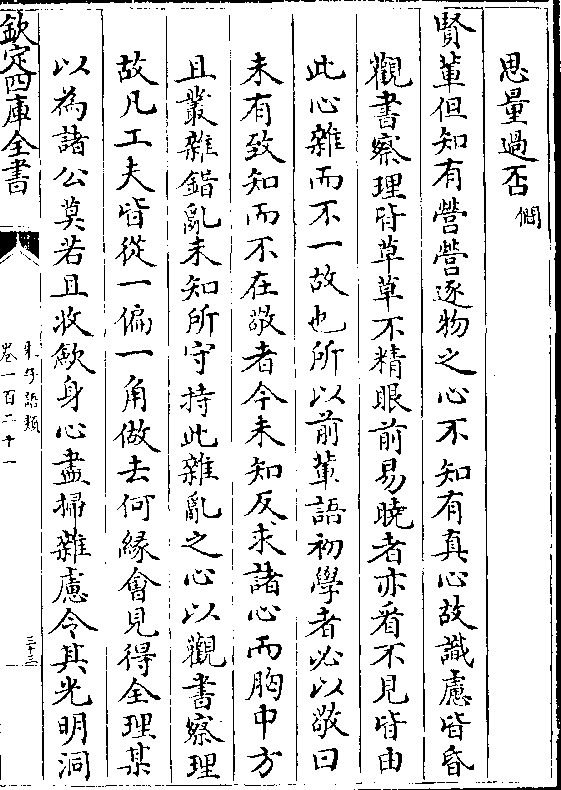 思量過否僴
賢輩但知有營營逐物之心不知有真心故識慮皆昏
觀書察理皆草草不精眼前易曉者亦看不見皆由
此心雜而不一故也所以前輩語初學者必以敬曰
未有致知而不在敬者今未知反求諸心而胸中方
且叢雜錯亂未知所守持此雜亂之心以觀書察理
故凡工夫皆從一偏一角做去何緣會見得全理某
以為諸公莫若且收斂身心盡掃雜慮令其光明洞
欽定四庫全書
朱子語類
卷一百二十一
三十三